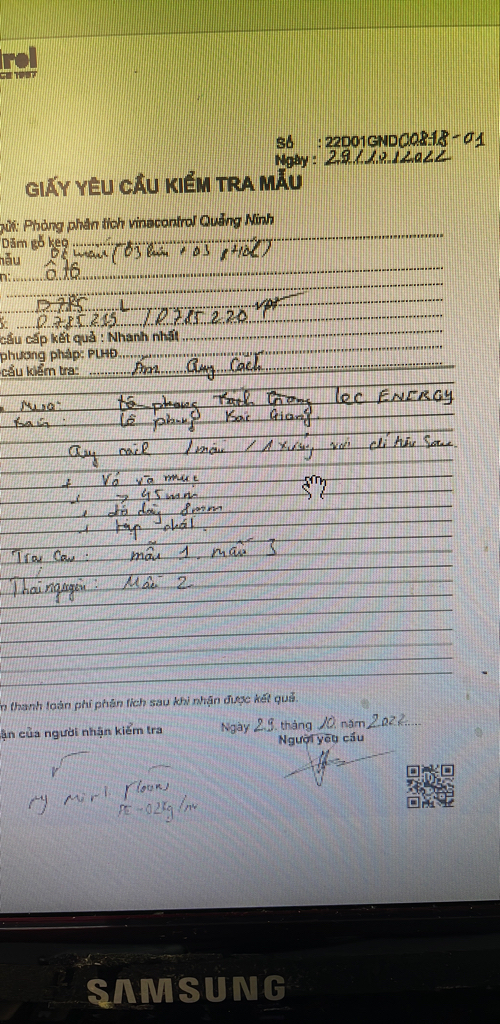 trol
CE 1957
Số : 22D01GND00818-01
Ngày : 29/10/2022
GIẤY YÊU CẦU KIỂM TRA MẪU
gửi: Phòng phân tích vinacontrol Quảng Ninh
Dăm gỗ keo
mẫu 06 mẫu (03 + 03
n: Ô tô
D785 L
s: 0785215 / 0785220
cầu cấp kết quả : Nhanh nhất
phương pháp: PLHĐ
cầu kiểm tra: Ẩm Quy Cách
Mua: ENERGY
Bán: Lê phong Bắc Giang
Quy cách 1 mẫu / với chỉ tiêu sau
+ Vỏ và mục
+ > 45mm
+ độ dày 8mm
+ tạp chất
Trai Cau : mẫu 1, mẫu 3
Thái nguyên : Mẫu 2
n thanh toán phí phân tích sau khi nhận được kết quả.
ận của người nhận kiểm tra
Ngày 29 tháng 10 năm 2022
Người yêu cầu
SAMSUNG